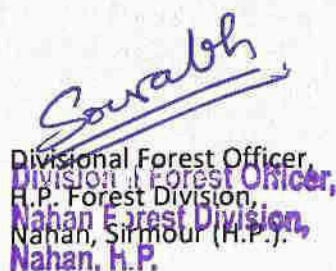 Sourabh
Divisional Forest Officer,
Divisional Forest Officer,
H.P. Forest Division,
Nahan Forest Division,
Nahan, Sirmour (H.P.).
Nahan, H.P.